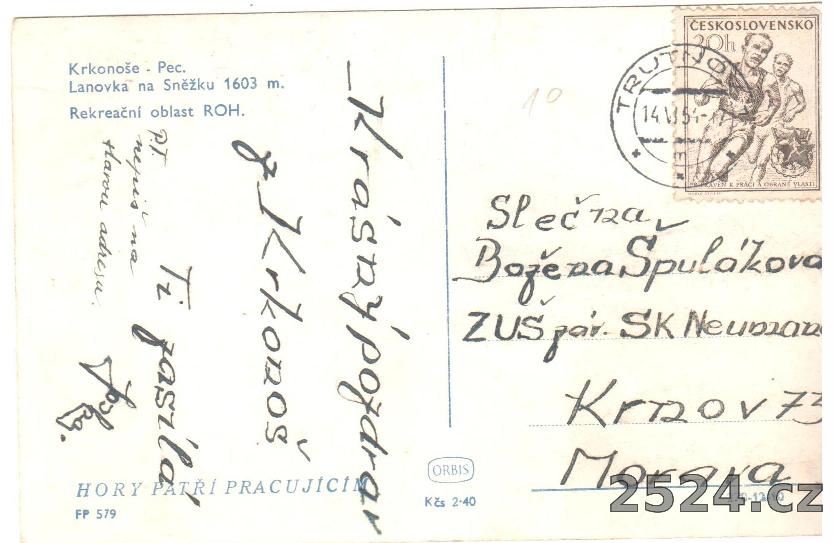 Krkonoše - Pec.
Lanovka na Sněžku 1603 m.
Rekreační oblast ROH.
Krásný pozdrav
z Krkonoš
Ti zasílá
P.T.
nepiš na
starou adresu.
HORY PATŘÍ PRACUJÍCÍM
FP 579
ORBIS
Kčs 2·40
ČESKOSLOVENSKO
20h
PŘIPRAVEN K PRÁCI A OBRANĚ VLASTI
TRUTNOV
Slečna
Božena Špuláková
ZUŠ záv. SK Neumann
Krnov 73
Morava
2524.cz